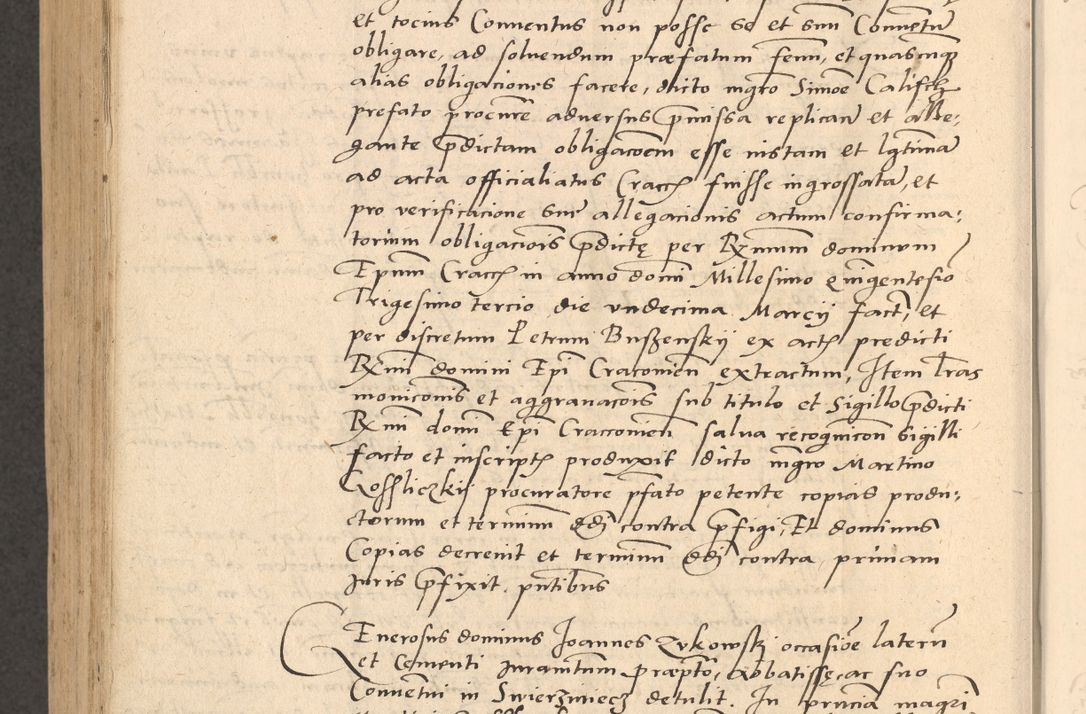 et tocius Conventus non posse se et suu Conventu
obligare, ad solvendum præfatum fenu, et quascunq
alias obligationes facere, dicto mgro Simoe Califck
prefato procure adversus pmissa replican et alle-
gante pdictam obligacoem esse iustam et lgtima
ad acta officialiatus Cracch fuisse ingrossata, et
pro verificacione sue allegacionis actum confirma-
torium obligaciois pdictę per Rmum dominum
Epum Cracch in anno domi Millesimo quingentesio
Trigesimo tercio die vndecima Marcij fact, et
per discretum Petrum Buszenskij ex actis predicti
Rmi domini Epi Cracovien extractum, Item lras
moniconis et aggravacois sub titulo et Sigillo pdicti
Rmi domi Epi Craccovien salva recognicon sigilli
facto et inscriptis produxit dicto mgro Martino
Gosliczkij procuratore pfato petente copias produ-
ctorum et terminu ddi contra pfigi, Et dominus
Copias decrevit et terminu ddi contra primam
Juris pfixit. pntibus
Generosus dominus Joannes Zukowskj occasioe lateru
et Cementi Juramtum præpto, Abbatissę, ac suo
Conventui in Swierzwiecz detulit. In pncia magri